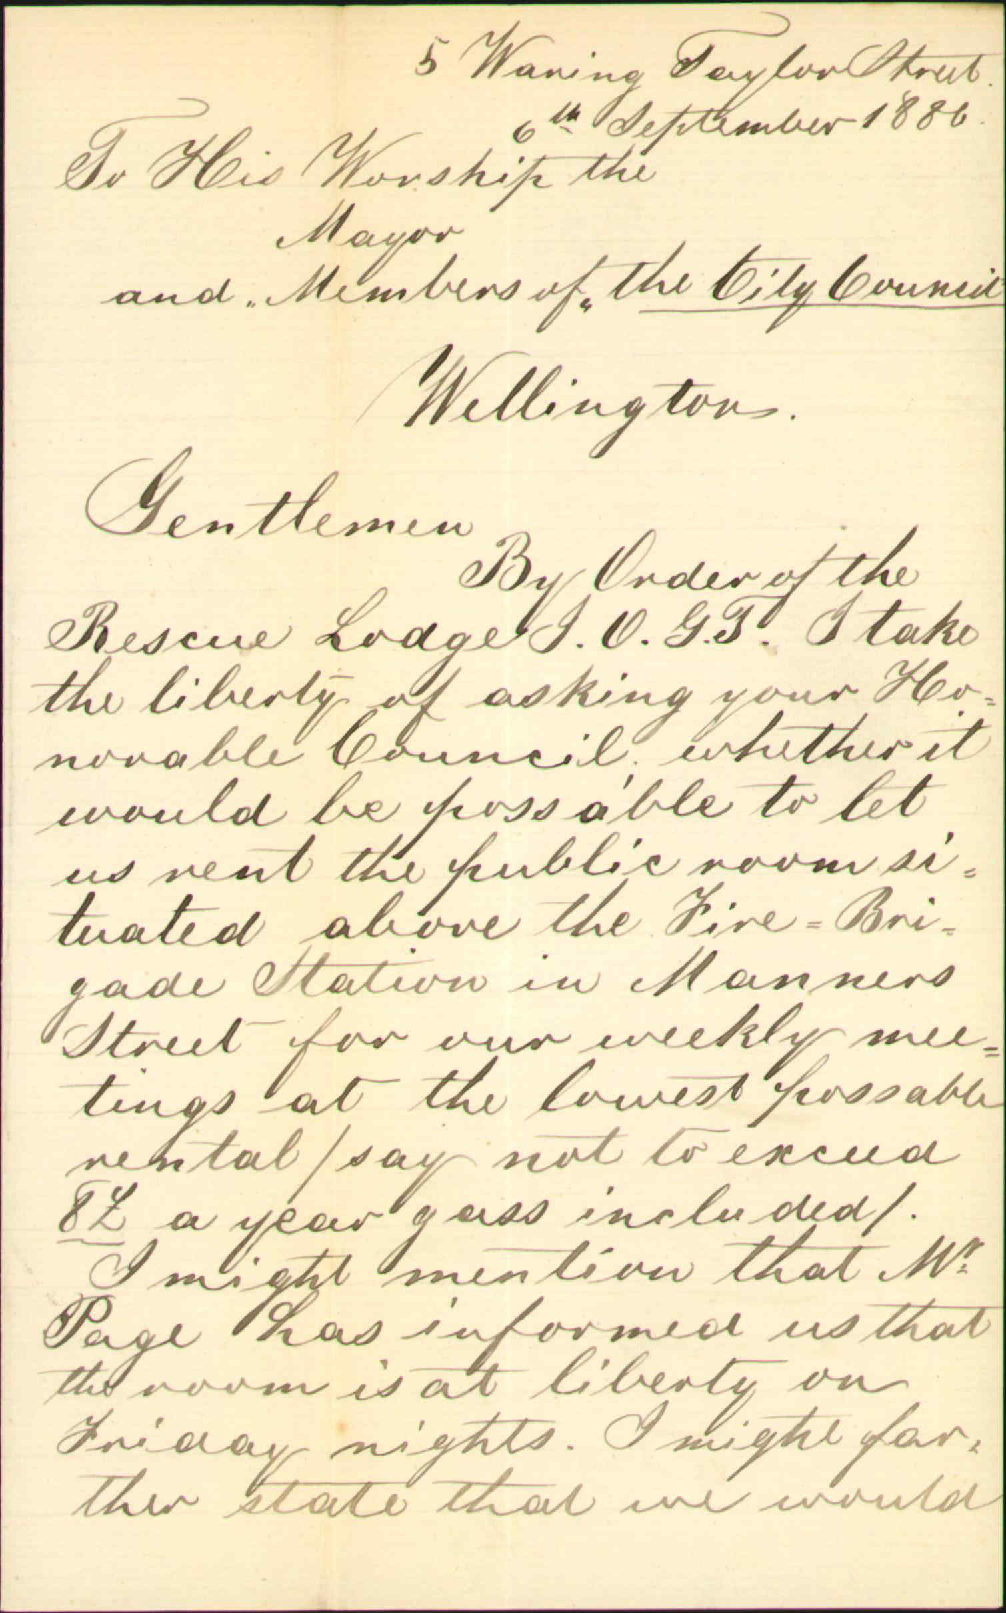 5 Waring Taylor Street.
6th September 1886.
To His Worship the
Mayor
and „Members of„ the City Council
Wellington.
Gentlemen
By Order of the
Rescue Lodge I. O. G. T. I take
the liberty of asking your Ho=
norable Council, whether it
would be possable to let
us rent the public room si=
tuated above the Fire=Bri=
gade Station in Manners
Street for our weekly mee=
tings at the lowest possable
rental /say not to exceed
8£ a year gass included/.
I might mention that Mr.
Page has informed us that
the room is at liberty on
Friday nights. I might far=
ther state that we would